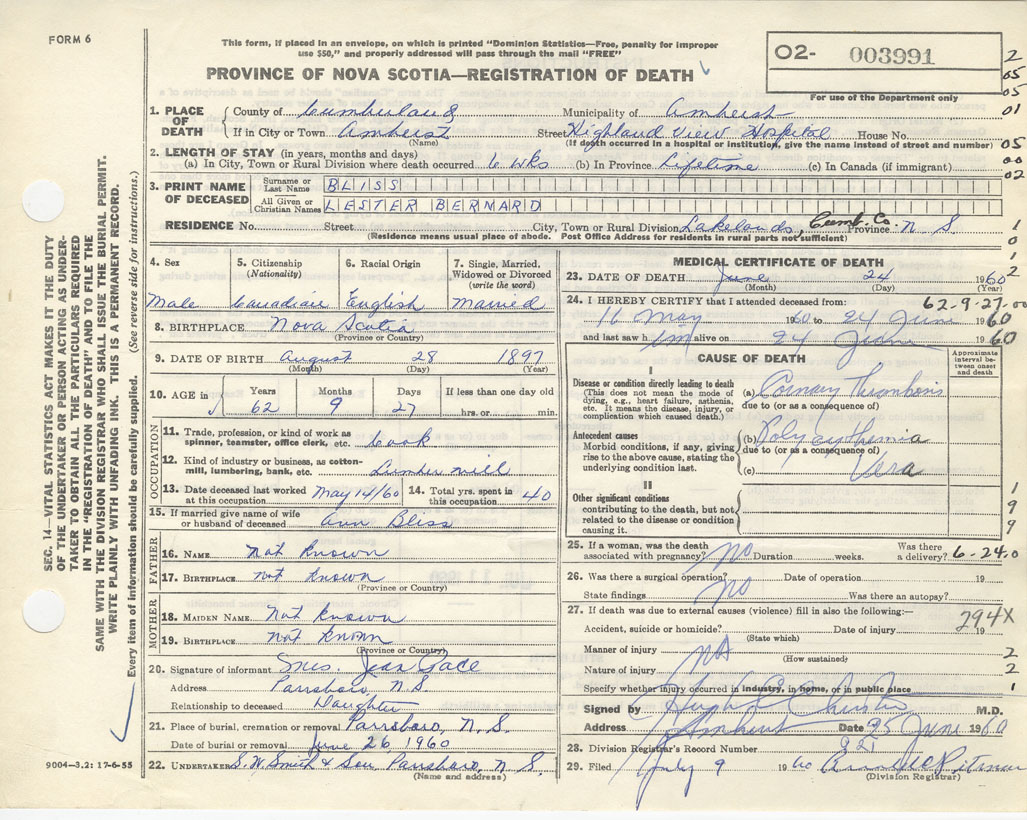 FORM 6
This form, if placed in an envelope, on which is printed "Dominion Statistics—Free, penalty for improper
use $50," and properly addressed will pass through the mail "FREE"
PROVINCE OF NOVA SCOTIA—REGISTRATION OF DEATH
O2- 003991
For use of the Department only
2
05
05
01
05
00
02
1. PLACE OF DEATH
County of Cumberland Municipality of Amherst
If in City or Town Amherst Street Highland View Hospital House No.
(Name) (If death occurred in a hospital or institution, give the name instead of street and number)
2. LENGTH OF STAY (in years, months and days)
(a) In City, Town or Rural Division where death occurred 6 wks (b) In Province Lifetime (c) In Canada (if immigrant)
3. PRINT NAME OF DECEASED
Surname or Last Name BLISS
All Given or Christian Names LESTER BERNARD
RESIDENCE No. Street City, Town or Rural Division Lakelands, Cumb. Co. Province N. S.
(Residence means usual place of abode. Post Office Address for residents in rural parts not sufficient)
1
0
1
2
4. Sex 5. Citizenship (Nationality) 6. Racial Origin 7. Single, Married, Widowed or Divorced (write the word)
Male Canadian English Married
8. BIRTHPLACE Nova Scotia
(Province or Country)
9. DATE OF BIRTH August 28 1897
(Month) (Day) (Year)
10. AGE in Years Months Days If less than one day old
62 9 27 hrs. or min.
OCCUPATION
11. Trade, profession, or kind of work as spinner, teamster, office clerk, etc. Cook
12. Kind of industry or business, as cotton-mill, lumbering, bank, etc. Lumber mill
13. Date deceased last worked at this occupation May 14/60 14. Total yrs. spent in this occupation 40
15. If married give name of wife or husband of deceased Ann Bliss
FATHER
16. NAME Not Known
17. BIRTHPLACE not known
(Province or Country)
MOTHER
18. MAIDEN NAME Not known
19. BIRTHPLACE Not known
(Province or Country)
20. Signature of informant Mrs. Jean Pace
Address Parrsboro, N. S.
Relationship to deceased Daughter
21. Place of burial, cremation or removal Parrsboro, N. S.
Date of burial or removal June 26, 1960
22. UNDERTAKER S. W. Smith & Son Parrsboro, N. S.
(Name and address)
MEDICAL CERTIFICATE OF DEATH
23. DATE OF DEATH June 24 1960
(Month) (Day) (Year)
24. I HEREBY CERTIFY that I attended deceased from: 62-9-27-00
16 May 1960 to 24 June 1960
and last saw him alive on 24 June 1960
CAUSE OF DEATH
Approximate interval between onset and death
I
Disease or condition directly leading to death
(This does not mean the mode of dying, e.g., heart failure, asthenia, etc. It means the disease, injury, or complication which caused death.)
(a) Coronary Thrombosis
due to (or as a consequence of)
Antecedent causes
Morbid conditions, if any, giving rise to the above cause, stating the underlying condition last.
(b) Polycythemia
due to (or as a consequence of)
(c) Vera
II
Other significant conditions
contributing to the death, but not related to the disease or condition causing it.
1
9
9
25. If a woman, was the death associated with pregnancy? no Duration weeks. Was there a delivery? 6-24.0
26. Was there a surgical operation? no Date of operation 19
State findings Was there an autopsy?
27. If death was due to external causes (violence) fill in also the following:— 294X
Accident, suicide or homicide? Date of injury 19
(State which)
Manner of injury NA 2
(How sustained)
Nature of injury 2
Specify whether injury occurred in industry, in home, or in public place 1
Signed by Hugh E Christie M.D.
Address Amherst Date 25 June 1960
28. Division Registrar's Record Number 921
29. Filed July 9 1960
(Division Registrar)
SEC. 14—VITAL STATISTICS ACT MAKES IT THE DUTY
OF THE UNDERTAKER OR PERSON ACTING AS UNDER-
TAKER TO OBTAIN ALL THE PARTICULARS REQUIRED
IN THE "REGISTRATION OF DEATH" AND TO FILE THE
SAME WITH THE DIVISION REGISTRAR WHO SHALL ISSUE THE BURIAL PERMIT.
WRITE PLAINLY WITH UNFADING INK. THIS IS A PERMANENT RECORD.
Every item of information should be carefully supplied. (See reverse side for instructions.)
9004—3.2: 17-6-55